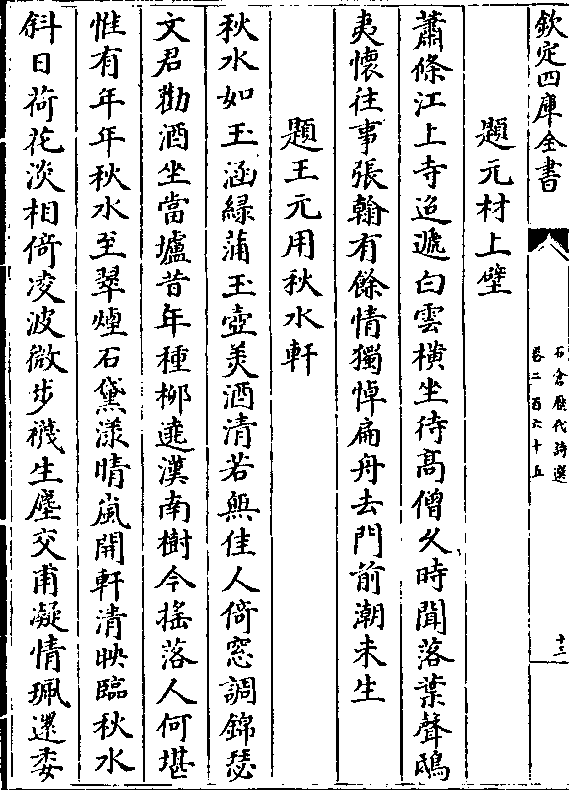 欽定四庫全書
石倉歷代詩選
卷二百六十五
十三
題元材上壁
蕭條江上寺迢遞白雲橫坐待髙僧久時聞落葉聲鴟
夷懷往事張翰有餘情獨悼扁舟去門前潮未生
題王元用秋水軒
秋水如玉涵緑蒲玉壺美酒清若無佳人倚窓調錦瑟
文君勸酒坐當壚昔年種柳遶漢南樹今揺落人何堪
惟有年年秋水至翠煙石黛漾晴嵐開軒清映臨秋水
斜日荷花淡相倚凌波微步襪生塵交甫凝情珮還委